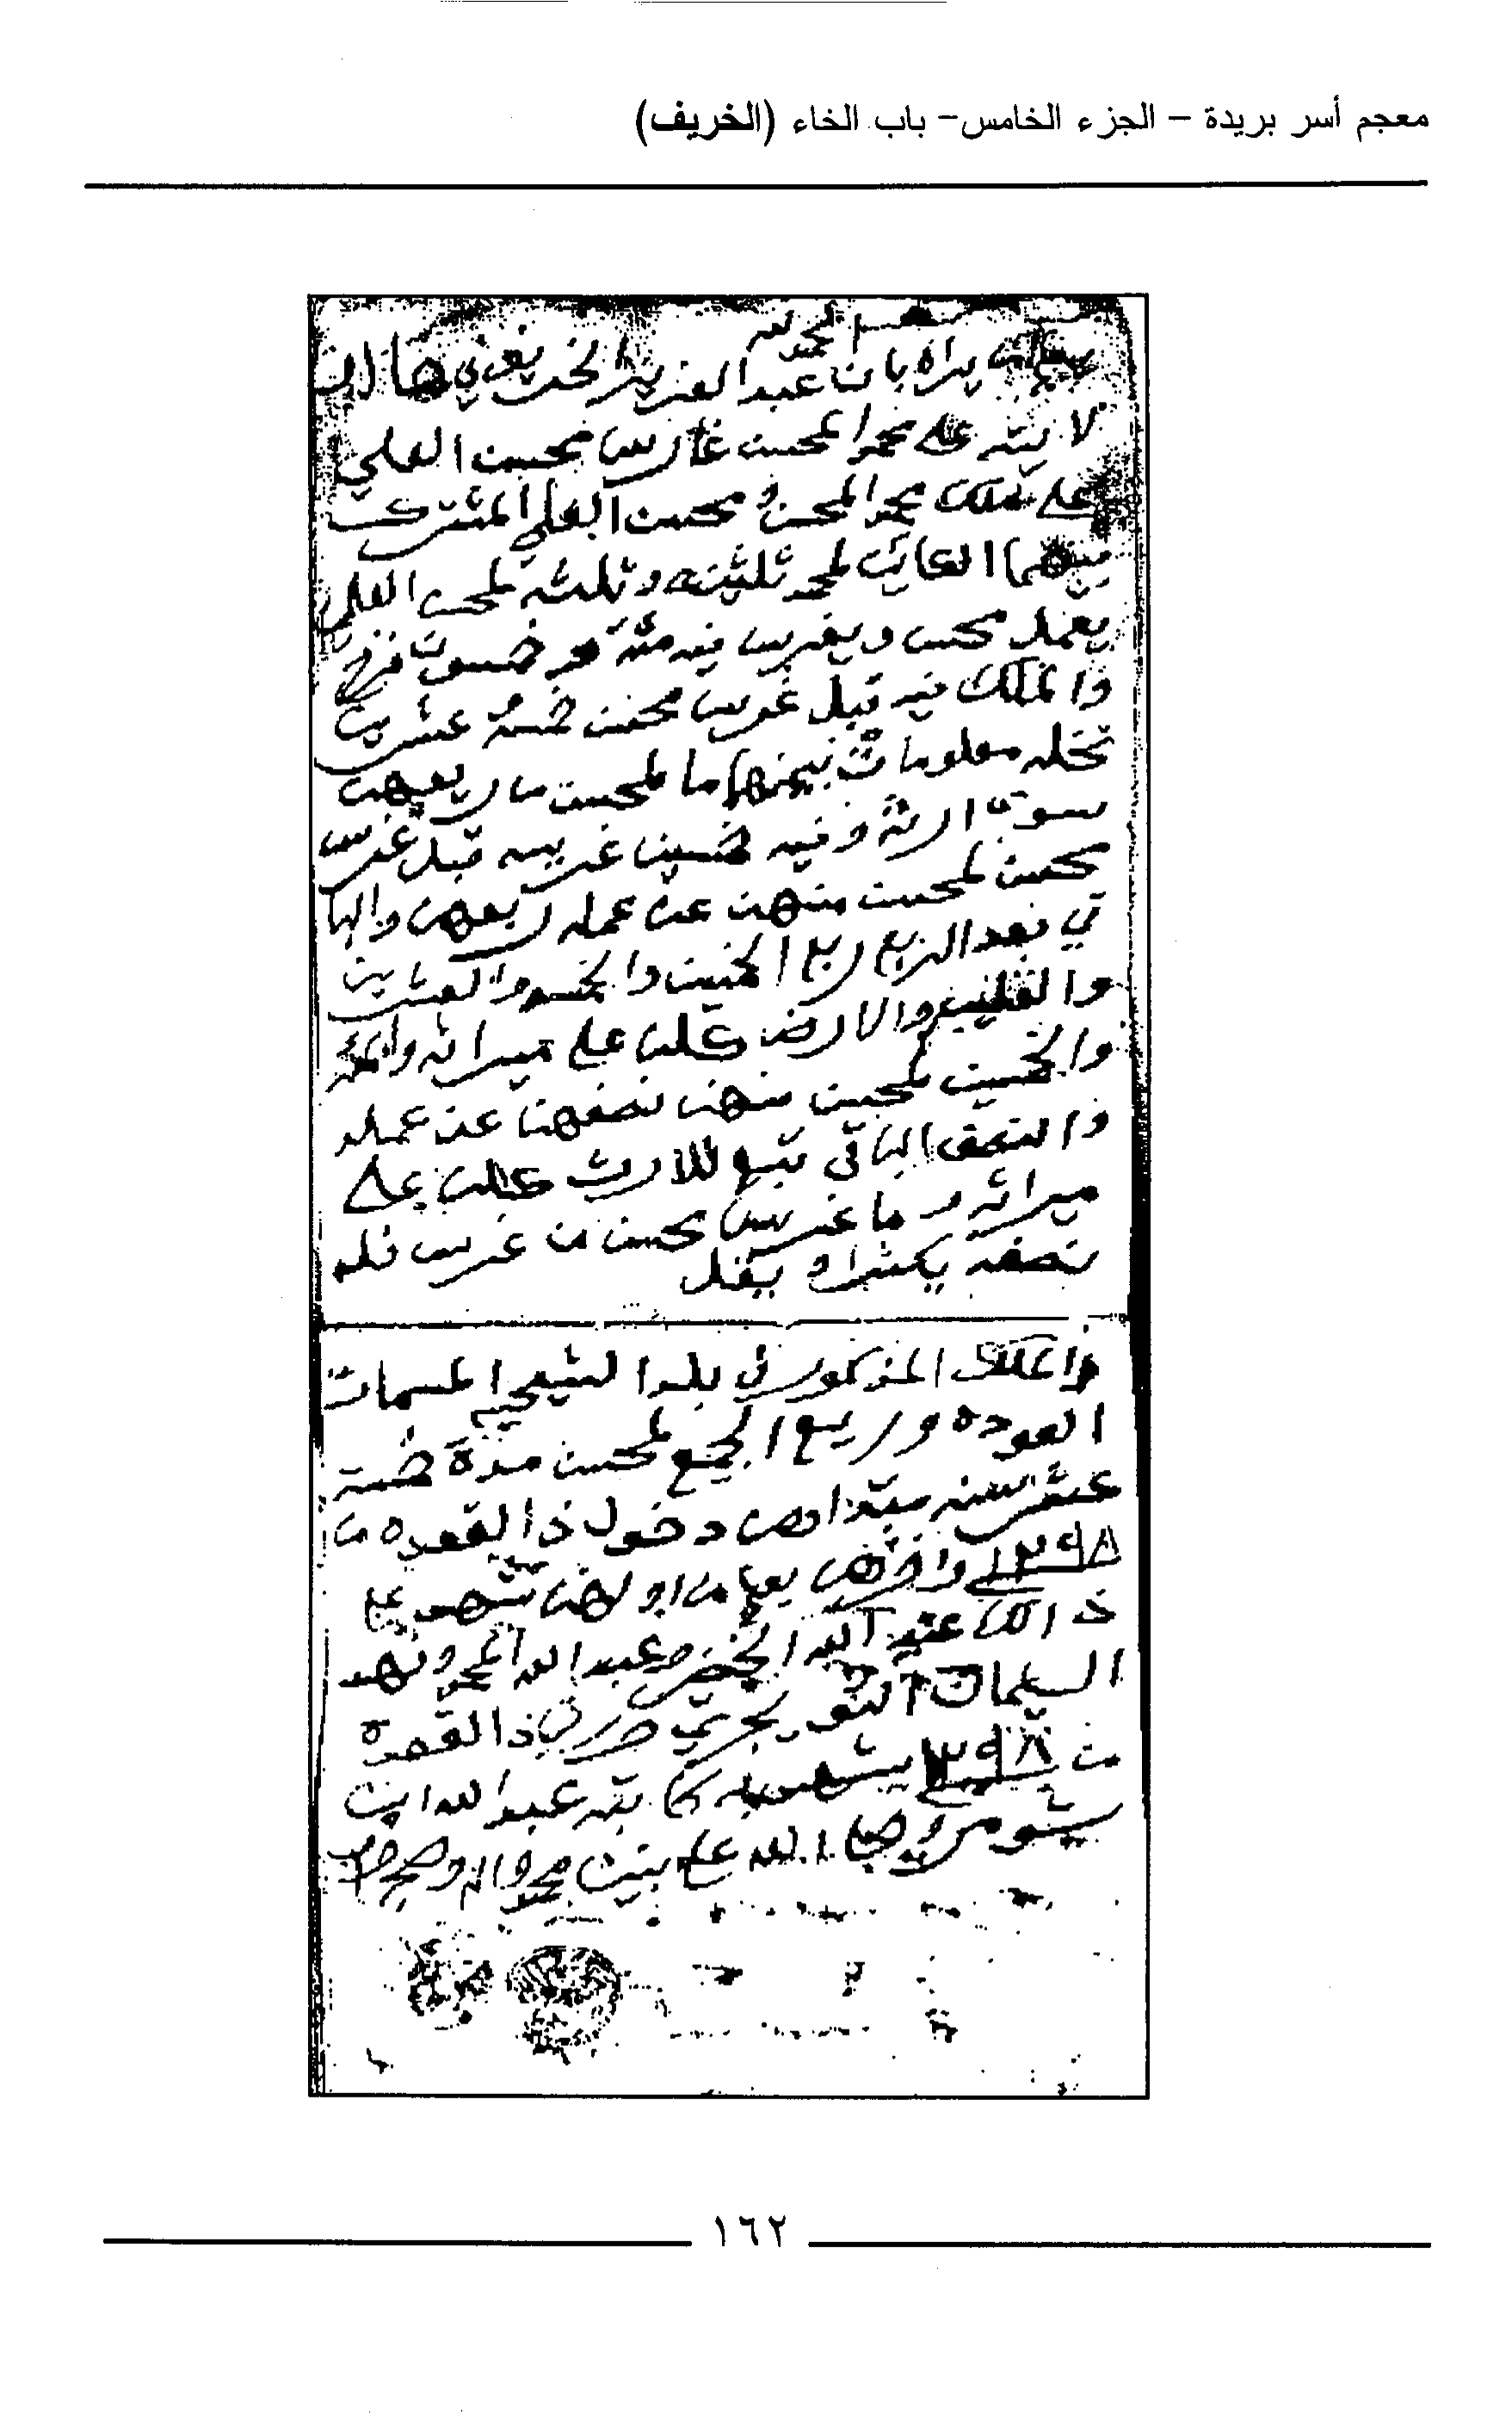 معجم أسر بريدة – الجزء الخامس– باب الخاء (الخريف)
الحمد لله
يراه بان عبدالعزيز الخريف في حال
لا بنته على محمد المحسن غارس محسن العلي
على ملك محمد المحسن و محسن العلي المشترك
بينهما لمحمد ثلثينه وثلثه لمحسن العلي
يعمل محسن ويغرس فيه مئة و خمسون فرخ
والملك فيه قبل غرس محسن خمسة عشرين
نخله معلومات بيمنهما ما لمحسن ربعهن
سوى ارثه وفيه خمسين غريسه قبل غرس
محسن لمحسن منهن عن عمله ربعهن والبا
قي بعد الربع ربع الخمسين والخمسه والعشرين
والقليب والارض كلن على ميراثه والمئه
والخمسين لمحسن منهن نصفهن عن عمله
والنصف الباقي تبع للارث كلن على
ميراثه و ما غرس محسن من غرس فله
نصفه يكثر او يقل
والملك المذكور في بلد الشيحيه المسمات
العوده و ريع الجميع لمحسن مدة خمسة
عشر سنه مبتداهن دخول ذا القعده من
١٢٩٨ واخرهن يعلم من اولهن شهد على
ذالك عبد الله الخضير وعبدالله المحمد و فهد
السليمان جرى حرر في ذا القعدة
من ١٢٩٨ يشهد به كاتبه عبدالله ابن
شومر وصلى الله على نبينا محمد واله وصحبه
١٦٢